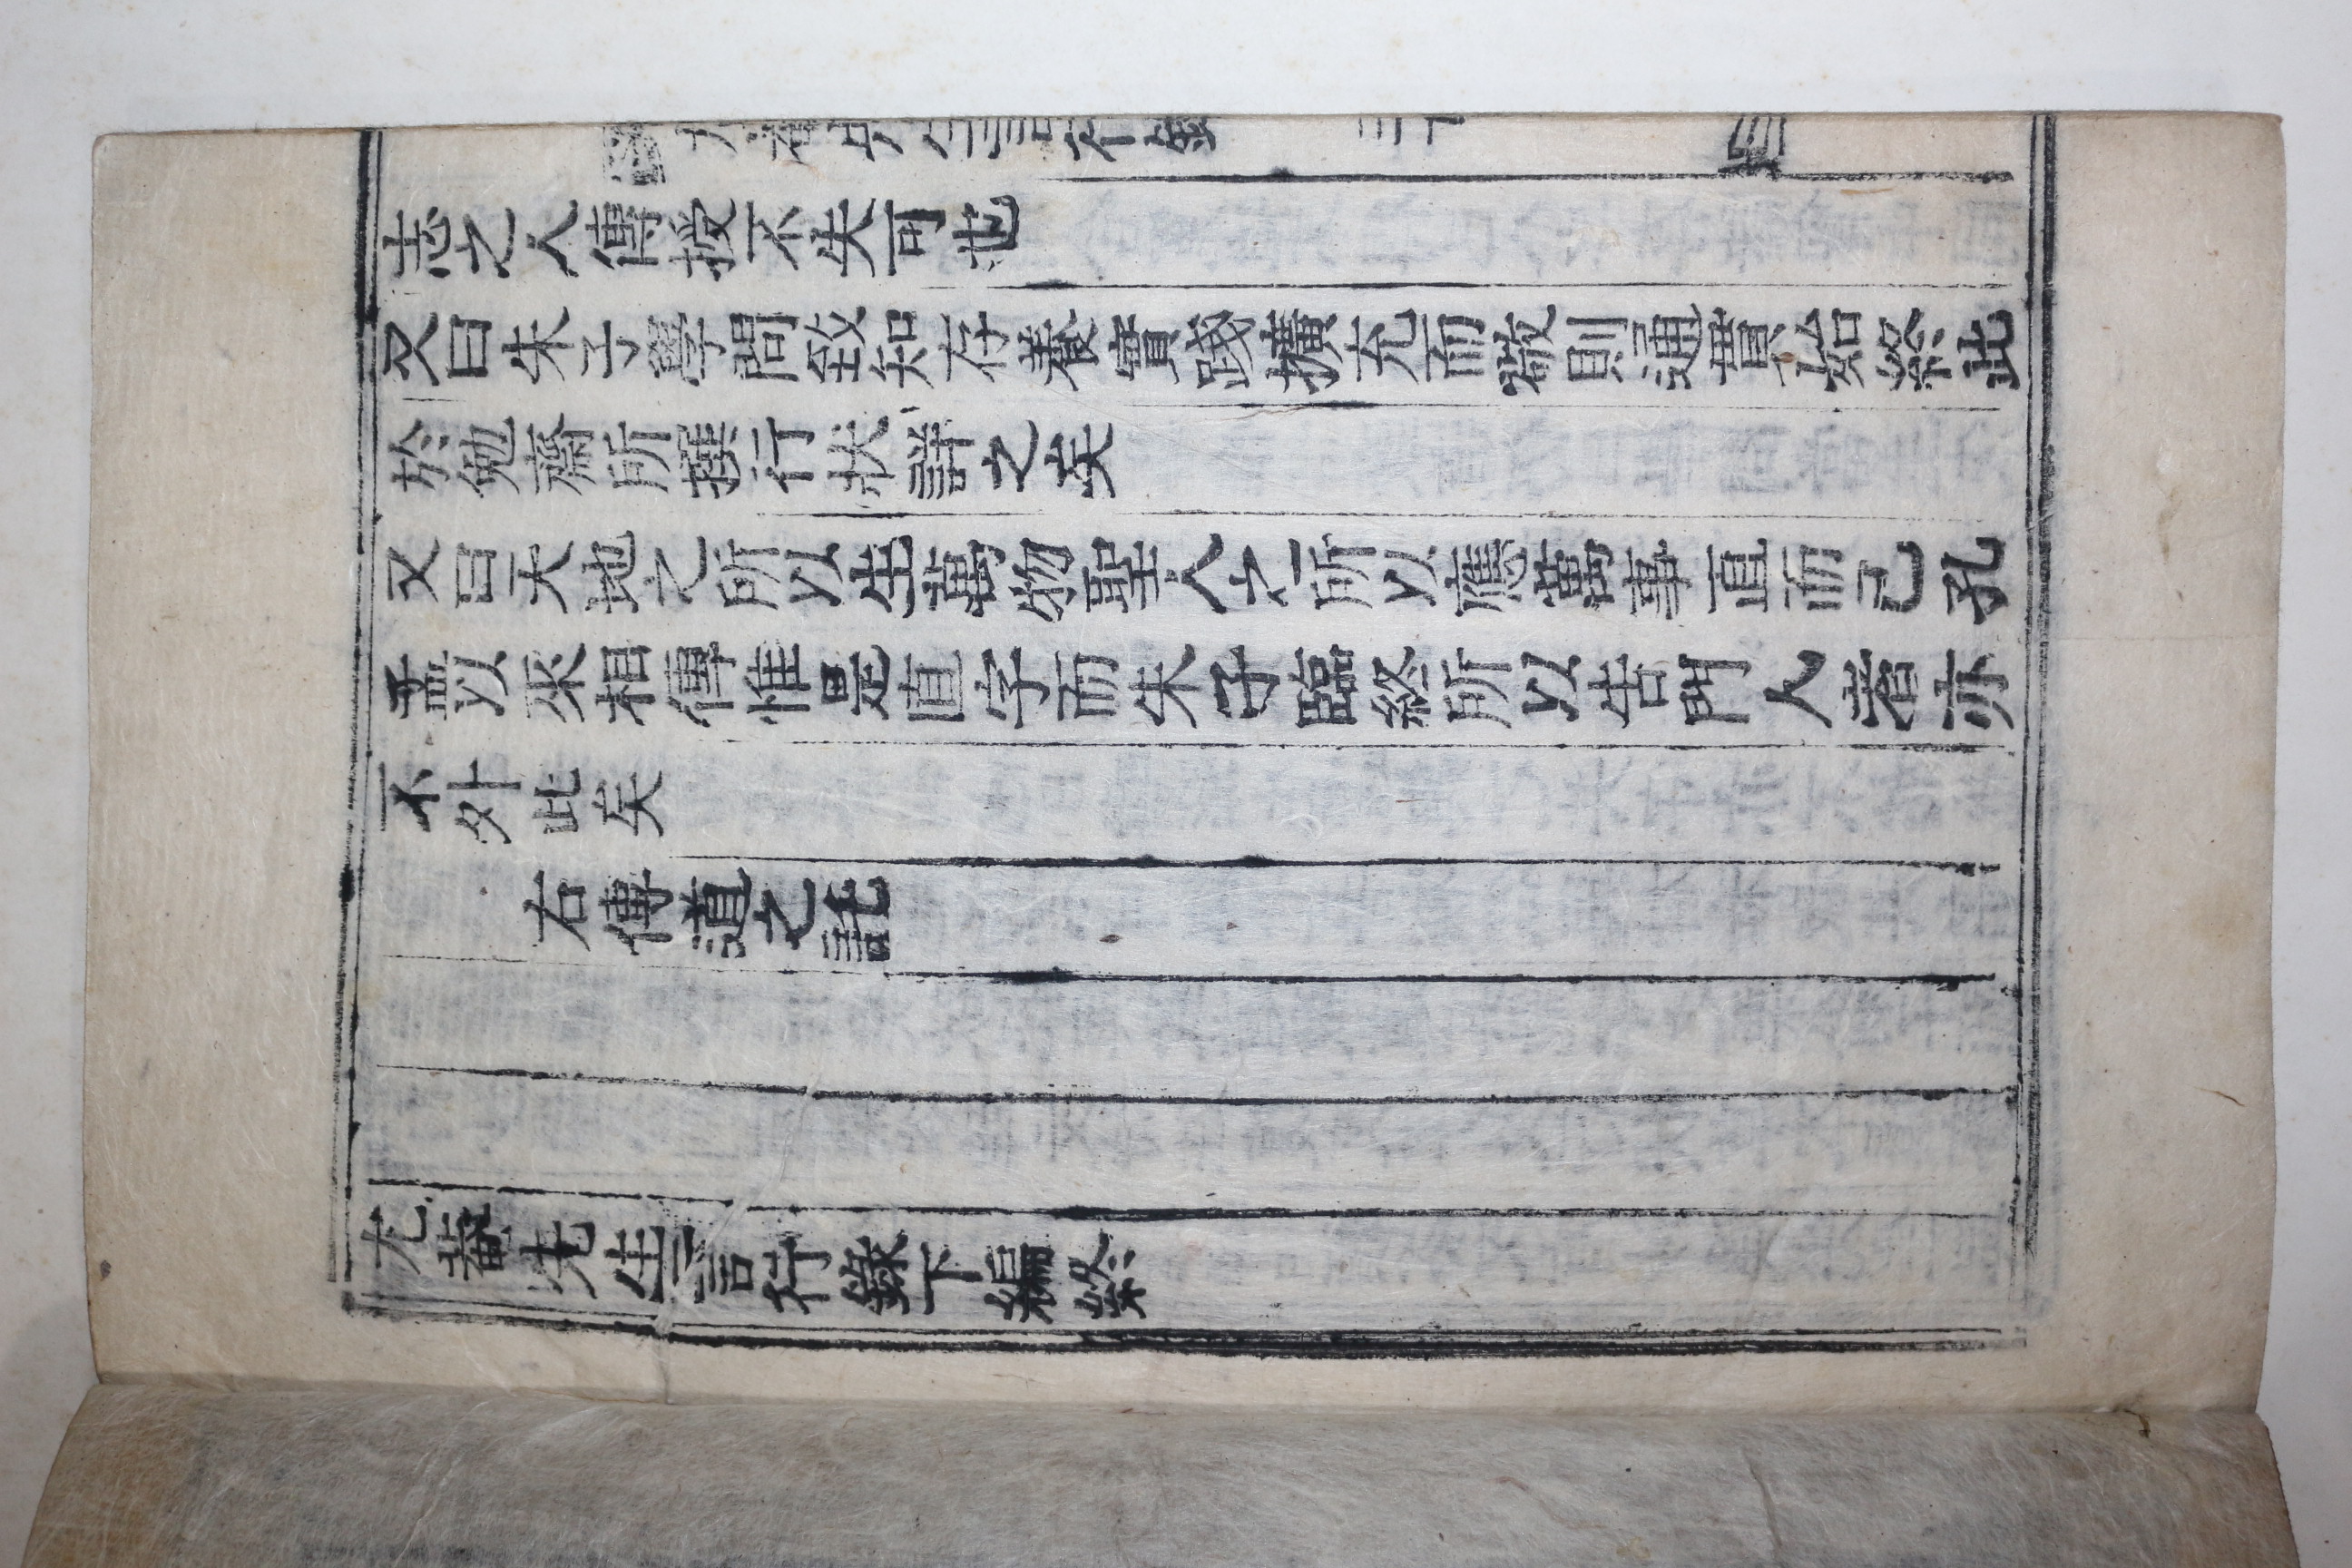 尤菴先生言行錄
三十
志之人傳授不失可也
又曰朱子學問致知存養實踐擴充而敬則通貫始終此
於勉齋所撰行狀詳之矣
又曰天地之所以生萬物聖人之所以應萬事直而已孔
孟以來相傳惟是直字而朱子臨終所以告門人者亦
不外此矣
右傳道之託
尤菴先生言行錄下編終